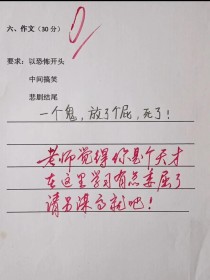 六、作文(30分)
要求：以恐怖开头
中间搞笑
悲剧结尾
一个鬼，放了个屁，死了！
老师觉得你是个天才
在这里学习有点委屈了
请另谋高就吧！